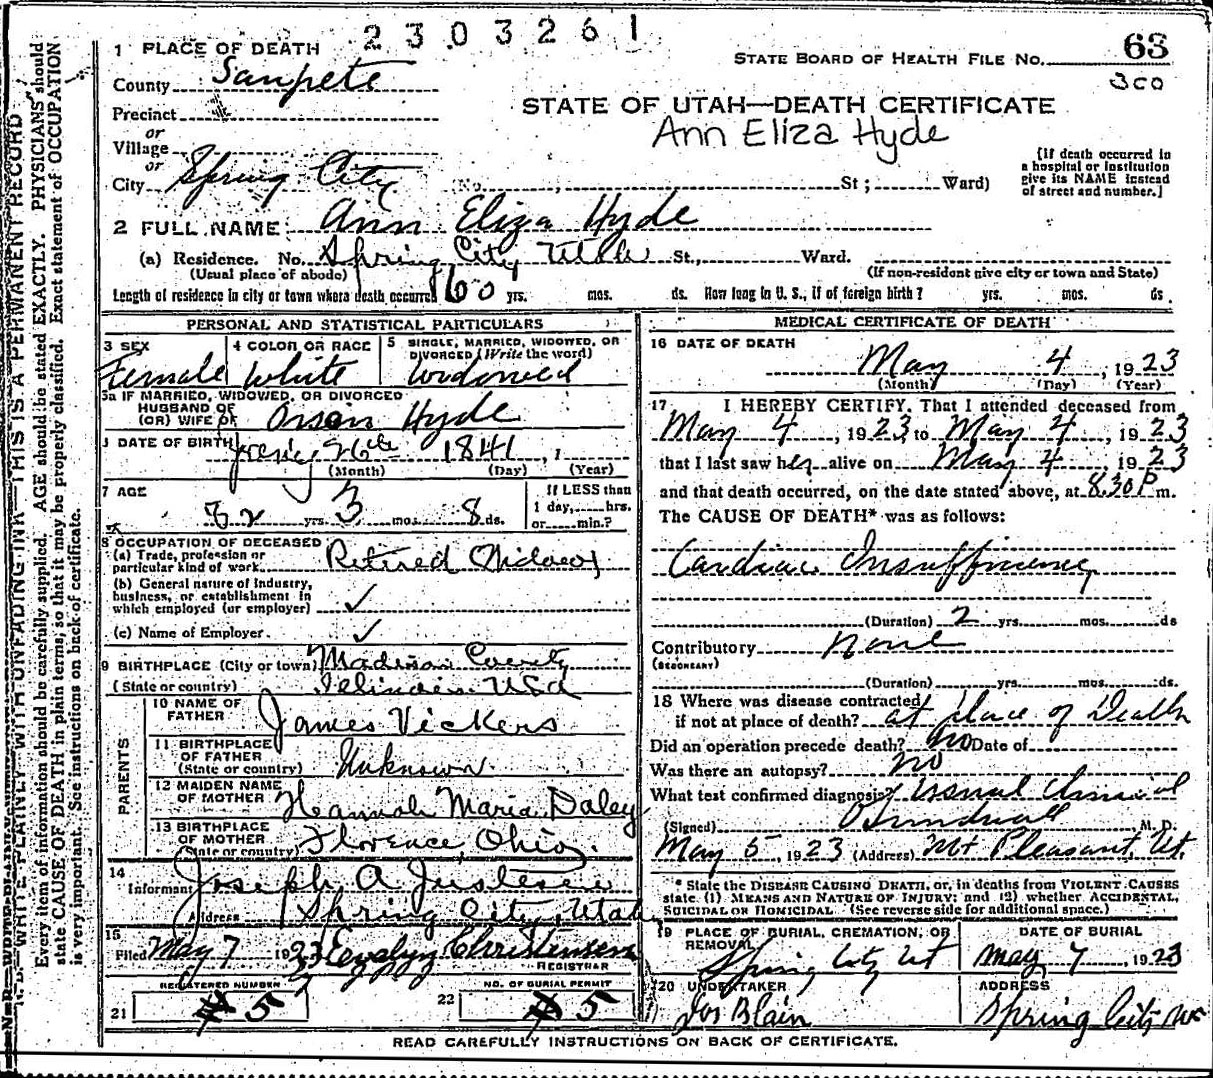 2303261
1 PLACE OF DEATH
STATE BOARD OF HEALTH FILE NO. 63
County Sanpete
300
Precinct
STATE OF UTAH—DEATH CERTIFICATE
or
Ann Eliza Hyde
Village
or
City Spring City (No. , St ; Ward)
[If death occurred in
a hospital or institution
give its NAME instead
of street and number.]
2 FULL NAME Ann Eliza Hyde
(a) Residence. No. Spring City Utah St., Ward.
(Usual place of abode) (If non-resident give city or town and State)
Length of residence in city or town where death occurred 60 yrs. mos. ds. How long in U. S., if of foreign birth? yrs. mos. ds
PERSONAL AND STATISTICAL PARTICULARS
3 SEX
Female
4 COLOR OR RACE
White
5 SINGLE, MARRIED, WIDOWED, OR
DIVORCED (Write the word)
Widowed
5a IF MARRIED, WIDOWED, OR DIVORCED
HUSBAND OF
(OR) WIFE OF Orson Hyde
DATE OF BIRTH 26th 1841, 1
(Month) (Day) (Year)
7 AGE
82 yrs. 3 mos. 8 ds.
If LESS than
1 day, hrs.
or min.?
8 OCCUPATION OF DECEASED
(a) Trade, profession or
particular kind of work Retired Widow
(b) General nature of industry,
business, or establishment in
which employed (or employer) ✓
(c) Name of Employer ✓
9 BIRTHPLACE (City or town) Madison County
(State or country) USA
PARENTS
10 NAME OF
FATHER James Vickers
11 BIRTHPLACE
OF FATHER
(State or country) Unknown
12 MAIDEN NAME
OF MOTHER Hannah Maria Daley
13 BIRTHPLACE
OF MOTHER
(State or country) Florence, Ohio.
14
Informant Joseph A Justesen
Address Spring City, Utah
15
Filed May 7 1923 Evelyn Christensen
REGISTRAR
REGISTERED NUMBER
21 5
NO. OF BURIAL PERMIT
22 5
MEDICAL CERTIFICATE OF DEATH
16 DATE OF DEATH
May 4, 1923
(Month) (Day) (Year)
17 I HEREBY CERTIFY, That I attended deceased from
May 4, 1923, to May 4, 1923
that I last saw her alive on May 4, 1923
and that death occurred, on the date stated above, at 8.30 P m.
The CAUSE OF DEATH* was as follows:
Cardiac Insufficiency
(Duration) 2 yrs. mos. ds
Contributory none
(SECONDARY)
(Duration) yrs. mos. ds.
18 Where was disease contracted
if not at place of death? at place of Death
Did an operation precede death? No Date of
Was there an autopsy? No
What test confirmed diagnosis? Usual Clinical
(Signed) M. D.
May 5, 1923 (Address) Mt Pleasant, Ut.
* State the DISEASE CAUSING DEATH, or, in deaths from VIOLENT CAUSES
state (1) MEANS AND NATURE OF INJURY; and (2) whether ACCIDENTAL,
SUICIDAL OR HOMICIDAL (See reverse side for additional space.)
19 PLACE OF BURIAL, CREMATION, OR
REMOVAL
Spring City Ut
DATE OF BURIAL
May 7, 1923
20 UNDERTAKER
Jos Blain
ADDRESS
Spring City Ut
READ CAREFULLY INSTRUCTIONS ON BACK OF CERTIFICATE.
WRITE PLAINLY WITH UNFADING INK THIS IS A PERMANENT RECORD
Every item of information should be carefully supplied. AGE should be stated EXACTLY. PHYSICIANS should
state CAUSE OF DEATH in plain terms, so that it may be properly classified. Exact statement of OCCUPATION
is very important. See instructions on back of certificate.